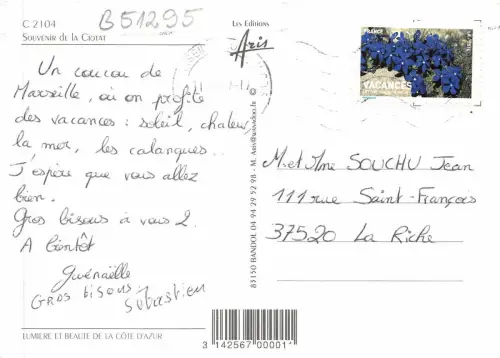 C 2104
B51295
SOUVENIR DE LA CIOTAT
Les Editions
Aris
Un coucou de
Marseille, où on profite
des vacances : soleil, chaleur,
la mer, les calanques...
J'espère que vous allez
bien.
Gros bisous à vous 2.
A bientôt
Gwénaëlle
GROS bisous
Sébastien
LUMIERE ET BEAUTE DE LA CÔTE D'AZUR
83150 BANDOL 04 94 29 52 98
FRANCE
VACANCES
M. et Mme SOUCHU Jean
111 rue Saint-François
37520 La Riche
3 142567 00001